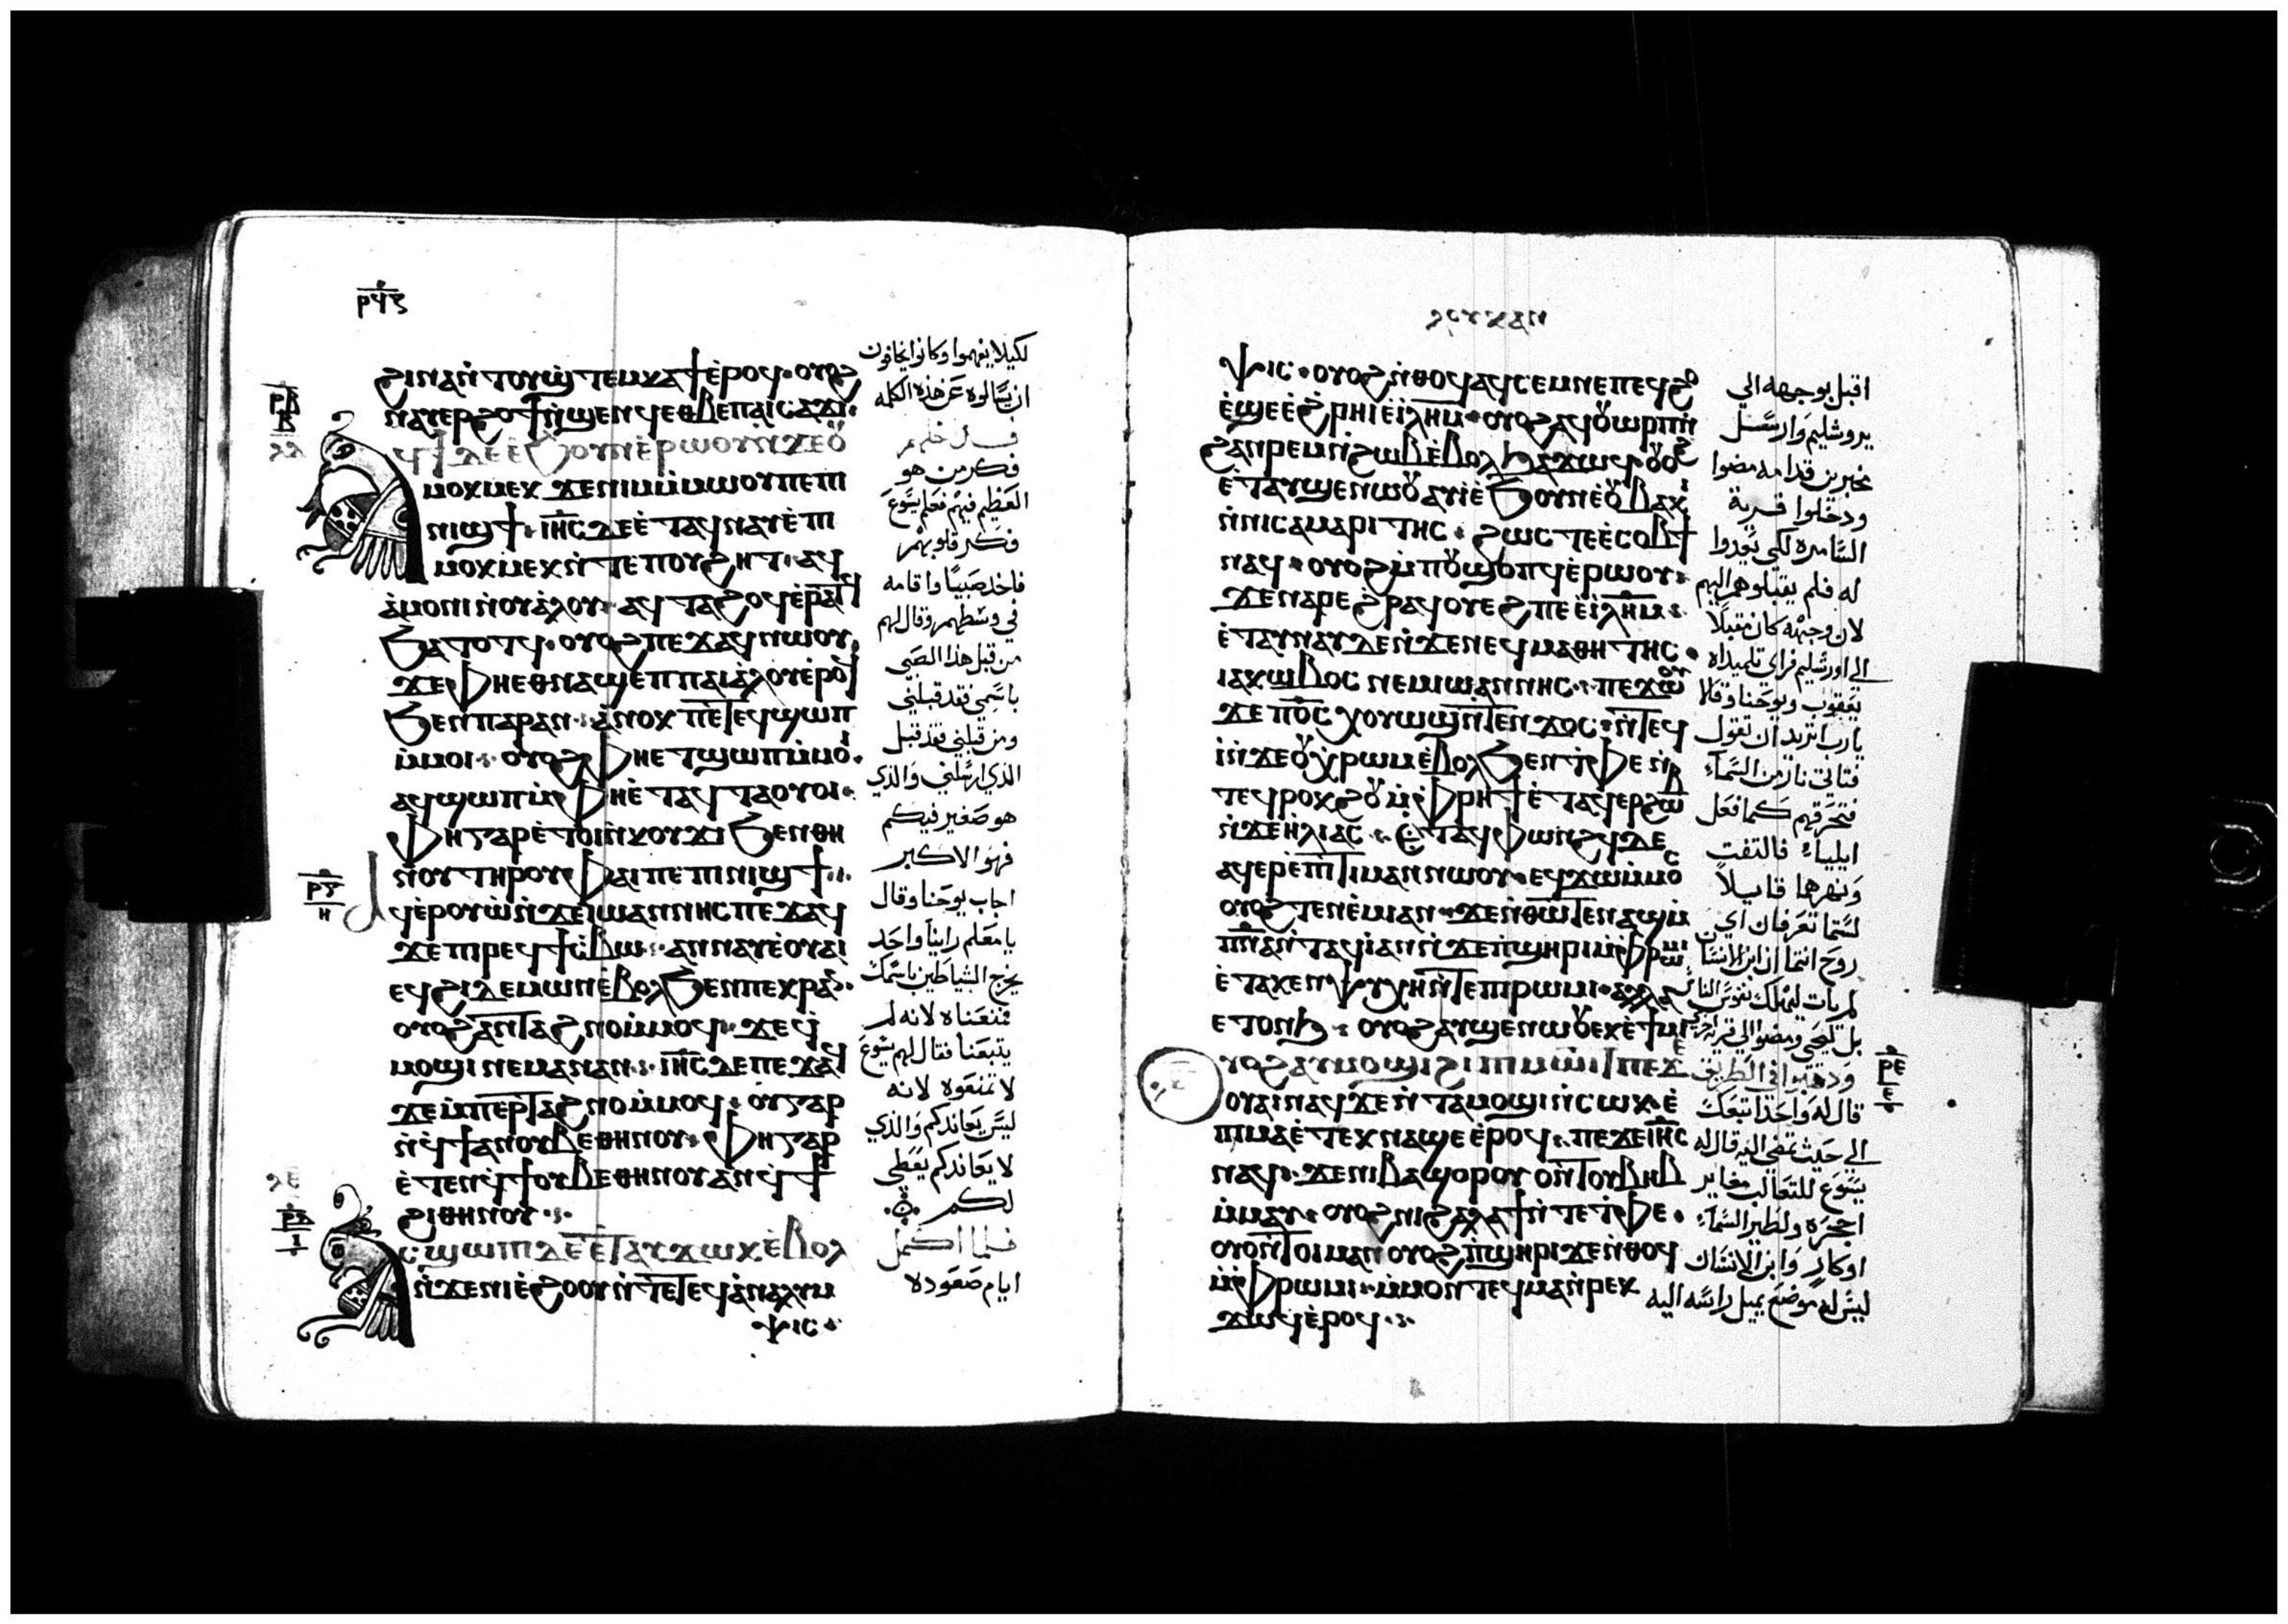 ⲣϥⲋ
ϩⲓⲛⲁⲛ̀ⲧⲟⲩϣ̀ⲧⲉⲙⲕⲁϯⲉ̀ⲣⲟϥ ⲟⲩⲟϩ
ⲛⲁⲩⲉⲣϩⲟϯⲛ̀ϣⲉⲛϥⲉⲑⲃⲉⲡⲁⲓⲥⲁϫⲓ
ϥⲓ ⲇⲉⲉ̀ϧⲟⲩⲛⲉ̀ⲣⲱⲟⲩⲛ̀ϫⲉⲟⲩ
ⲙⲟⲕⲙⲉⲕ ϫⲉⲛⲓⲙⲙ̀ⲙⲱⲟⲩⲡⲉⲡⲓ
ⲛⲓϣϯ ⲓⲏ̅ⲥ̅ ⲇⲉⲉ̀ⲧⲁϥⲛⲁⲩⲉ̀ⲡⲓ
ⲙⲟⲕⲙⲉⲕⲛ̀ⲧⲉⲡⲟⲩϩⲏⲧ ⲁϥ
ⲁ̀ⲙⲟⲛⲓⲛ̀ⲟⲩⲁ̀ⲗⲟⲩ ⲁϥⲧⲁϩⲟϥⲉ̀ⲣⲁⲧϥ
ϧⲁⲧⲟⲧϥ ⲟⲩⲟϩⲡⲉϫⲁϥⲛⲱⲟⲩ
ϫⲉⲫⲏⲉⲑⲛⲁϣⲉⲡⲡⲁⲓⲁ̀ⲗⲟⲩⲉ̀ⲣⲟϥ
ϧⲉⲛⲡⲁⲣⲁⲛ ⲁⲛⲟⲕⲡⲉⲧⲉϥϣⲱⲡ
ⲙ̀ⲙⲟⲓ ⲟⲩⲟϩⲫⲏⲉⲧϣⲱⲡⲙ̀ⲙⲟⲓ
ⲁϥϣⲱⲡⲙ̀ⲫⲏⲉ̀ⲧⲁϥⲧⲁⲟⲩⲟⲓ
ⲫⲏⲅⲁⲣⲉ̀ⲧⲟⲓⲛ̀ⲕⲟⲩϫⲓϧⲉⲛⲑⲏ
ⲛⲟⲩⲧⲏⲣⲟⲩⲫⲁⲓⲡⲉⲡⲓⲛⲓϣϯ
ⲁϥⲉ̀ⲣⲟⲩⲱ̀ⲛ̀ϫⲉⲓⲱⲁⲛⲛⲏⲥⲡⲉϫⲁϥ
ϫⲉⲡⲓⲣⲉϥϯⲥⲃⲱ ⲁⲛⲛⲁⲩⲉ̀ⲟⲩⲁⲓ
ⲉϥϩⲓⲇⲉⲙⲱⲛⲉ̀ⲃⲟⲗϧⲉⲛⲡⲉⲕⲣⲁⲛ
ⲟⲩⲟϩⲁⲛⲧⲁϩⲛⲟⲙ̀ⲙⲟϥ ϫⲉϥ
ⲙⲟϣⲓⲛⲉⲙⲁⲛⲁⲛ ⲓⲏ̅ⲥ̅ ⲇⲉⲡⲉϫⲁϥ
ϫⲉⲙ̀ⲡⲉⲣⲧⲁϩⲛⲟⲙ̀ⲙⲟϥ ⲟⲩⲅⲁⲣ
ⲛ̀ϥϯⲁⲛⲟⲩⲃⲉⲑⲏⲛⲟⲩ ⲫⲏⲅⲁⲣ
ⲉ̀ⲧⲉⲛϥϯⲟⲩⲃⲉⲑⲏⲛⲟⲩⲁⲛϥϯ
ϩⲓⲑⲏⲛⲟⲩ
ⲥϣⲱⲡⲓⲇⲉⲉ̀ⲧⲁⲩϫⲱⲕⲉ̀ⲃⲟⲗ
ⲛ̀ϫⲉⲛⲓⲉ̀ϩⲟⲟⲩⲛ̀ⲧⲉⲧⲉϥⲁ̀ⲛⲁⲗⲩⲙ
ⲯⲓⲥ
لكيلا يفهموا وكانوا يخافون
ان يسالوه عن هذه الكلمه
فكر من هو
العظيم فيهم فعلم يسوع
فكر قلوبهم
فاخذ صبيا واقامه
في وسطهم وقال لهم
من قبل هذا الصبي
باسمي فقد قبلني
ومن قبلني فقد قبل
الذي ارسلني والذي
هو صغير فيكم
فهو الاكبر
اجاب يوحنا وقال
يا معلم راينا واحد
يخرج الشياطين باسمك
فمنعناه لانه لم
يتبعنا فقال لهم يسوع
لا تمنعوه لانه
ليس يعاندكم والذي
لا يعاندكم يعطي
لكم
فلما اكمل
ايام صعوده
ⲗⲟⲩⲕⲁⲛ
ⲯⲓⲥ ⲟⲩⲟϩⲛ̀ⲑⲟϥⲁϥⲥⲉⲙⲛⲉⲡⲉϥϩⲟ
ⲉ̀ϣⲉⲉ̀ϩⲣⲏⲓⲉ̀ⲓⲗⲏⲙ ⲟⲩⲟϩⲁϥⲟⲩⲱⲣⲡⲛ̀
ϩⲁⲛⲣⲉⲙⲛ̀ϩⲱⲃⲉ̀ⲃⲟⲗϧⲁϫⲱϥ ⲟⲩⲟϩ
ⲉ̀ⲧⲁⲩϣⲉⲛⲱⲟⲩⲁⲩⲓ̀ⲉ̀ϧⲟⲩⲛⲉ̀ⲟⲩⲃⲁⲕⲓ
ⲛ̀ⲛⲓⲥⲁⲙⲁⲣⲓⲧⲏⲥ ϩⲱⲥⲧⲉⲉ̀ⲥⲟⲃϯ
ⲛⲁϥ ⲟⲩⲟϩⲙ̀ⲡⲟⲩϣⲟⲡϥⲉ̀ⲣⲱⲟⲩ
ϫⲉⲛⲁⲣⲉϩⲣⲁϥⲟⲩⲉϩⲡⲉⲉ̀ⲓⲗⲏⲙ
ⲉ̀ⲧⲁⲩⲛⲁⲩⲇⲉⲛ̀ϫⲉⲛⲉϥⲙⲁⲑⲏⲧⲏⲥ
ⲓⲁⲕⲱⲃⲟⲥ ⲛⲉⲙⲓⲱⲁⲛⲛⲏⲥ ⲡⲉϫⲱⲟⲩ
ϫⲉⲡⲟ̅ⲥ̅ ⲭⲟⲩⲱϣⲛ̀ⲧⲉⲛϫⲟⲥ ⲛ̀ⲧⲉϥ
ⲓ̀ⲛ̀ϫⲉⲟⲩⲭⲣⲱⲙⲉ̀ⲃⲟⲗϧⲉⲛⲧ̀ⲫⲉⲛ̀
ⲧⲉϥⲣⲟⲕϩⲟⲩⲙ̀ⲫⲣⲏϯⲉ̀ⲧⲁϥⲉⲣϩⲱⲃ
ⲛ̀ϫⲉⲏ̀ⲗⲓⲁⲥ ⲉ̀ⲧⲁϥⲫⲱⲛϩϥⲇⲉ
ⲁϥⲉⲣⲉ̀ⲡⲓⲧⲓⲙⲁⲛⲛⲱⲟⲩ ⲉϥϫⲱⲙ̀ⲙⲟⲥ
ⲟⲩⲟϩⲧⲉⲛⲉ̀ⲙⲓⲁⲛ ϫⲉⲛ̀ⲑⲱⲧⲉⲛⲁϣⲙ̀
ⲡⲛ̅ⲁ̅ⲛ̀ⲧⲁϥⲓ̀ⲁⲛⲛ̀ϫⲉⲡ̀ϣⲏⲣⲓⲙ̀ⲫⲣⲱⲙⲓ
ⲉ̀ⲧⲁⲕⲉⲛⲯⲩⲭⲏⲛ̀ⲧⲉⲡⲓⲣⲱⲙⲓ
ⲉⲧⲟⲛϧ ⲟⲩⲟϩⲁⲩϣⲉⲛⲱⲟⲩⲉⲕⲉϯⲙⲓ
ⲩⲟϩⲁⲩⲙⲟϣⲓϩⲓⲡⲓⲙⲱⲓⲧⲡⲉϫⲉ
ⲟⲩⲁⲓⲛⲁϥϫⲉⲛ̀ⲧⲁⲙⲟϣⲓⲛ̀ⲥⲱⲕ ⲉ̀
ⲡⲓⲙⲁⲉ̀ⲧⲉⲕⲛⲁϣⲉⲉ̀ⲣⲟϥ ⲡⲉϫⲉⲓⲏ̅ⲥ̅
ⲛⲁϥ ϫⲉⲛⲓⲃⲁϣⲟⲣⲟⲩⲟⲛⲧⲟⲩⲃⲏⲃ
ⲙ̀ⲙⲁⲩ ⲟⲩⲟϩⲛⲓϩⲁⲗⲁϯⲛ̀ⲧⲉⲧ̀ⲫⲉ
ⲟⲩⲟⲛ̀ⲧⲟⲩⲙⲁⲛⲟⲩⲟϩⲡ̀ϣⲏⲣⲓϫⲉⲛ̀ⲑⲟϥ
ⲙ̀ⲫⲣⲱⲙⲓ ⲙ̀ⲙⲟⲛⲧⲉϥⲙⲁⲛ̀ⲣⲉⲕ
ϫⲱϥⲉ̀ⲣⲟϥ
اقبل بوجهه الي
يروشليم وارسل
مخبرين قدامه مضوا
ودخلوا قرية
السامره لكي يعدوا
له فلم يقبلوهم اليهم
لان وجهه كان مقبلا
الى اورشليم فراي تلميذاه
يعقوب ويوحنا وقالا
يا رب اتريد ان نقول
فتاتي نار من السماء
فتحرقهم كما فعل
ايلياء فالتفت
ونهرهما قايلا
لستما تعرفان اي
روح انتما ان ابن الانسان
لم يات ليهلك نفوس الناس
بل ليحيي ومضوا الي قرية اخري
وذهبوا في الطريق
قال له واحد اتبعك
الي حيث تمضي اليه قال له
يسوع للثعالب مغاير
اجحره ولطير السماء
اوكار وابن الانسان
ليس له موضع يميل راسه اليه